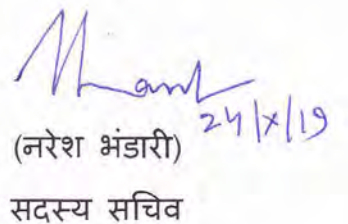 24/x/19
(नरेश भंडारी)
सदस्य सचिव